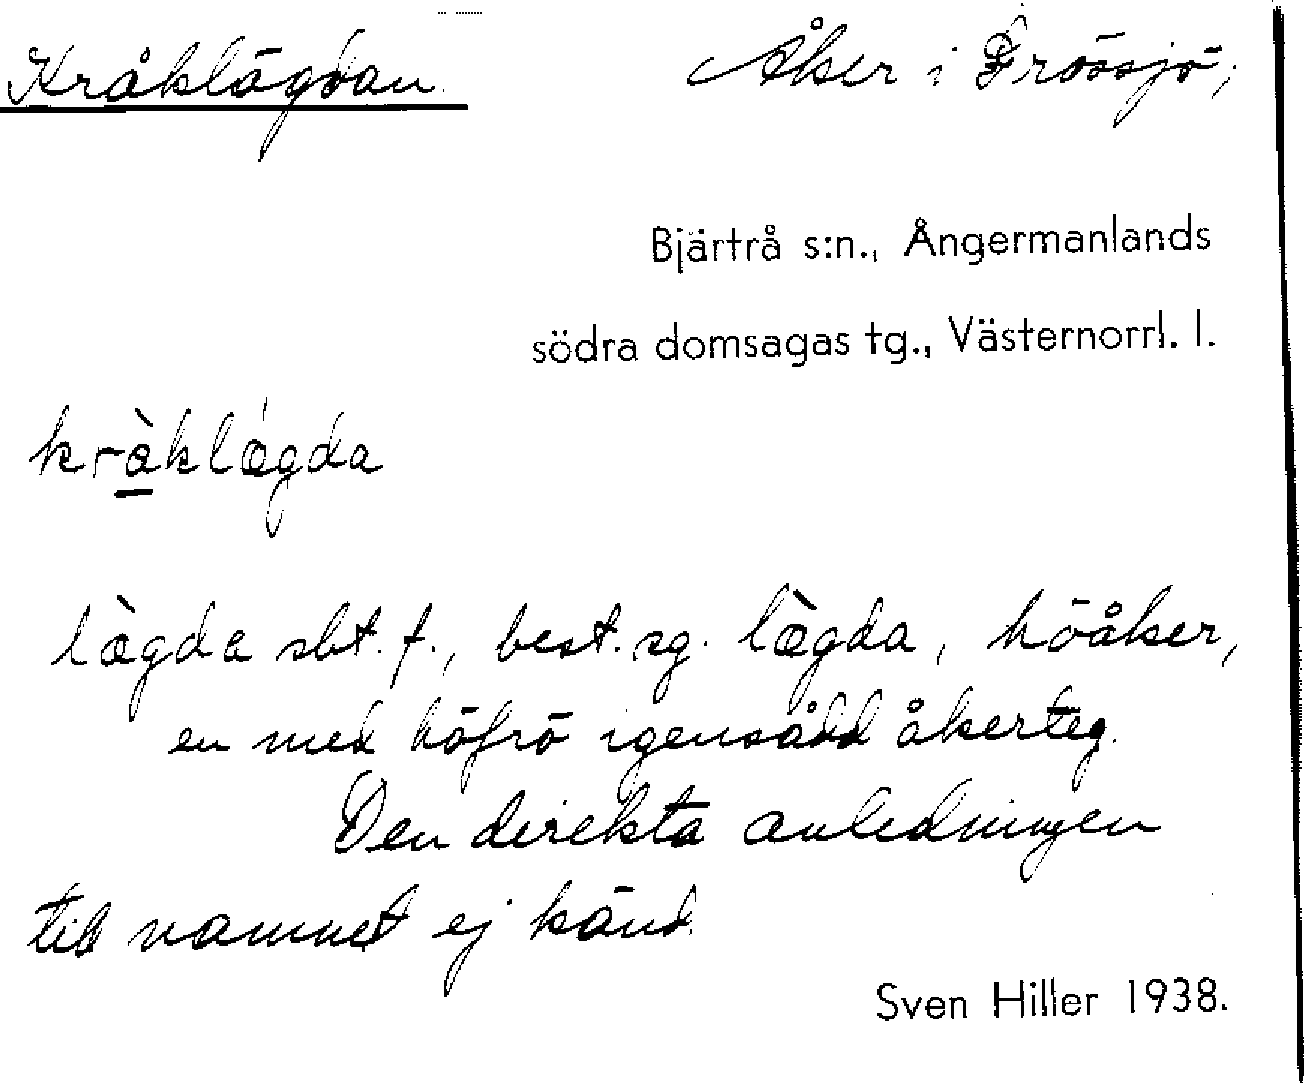 Kråklägdan. Åker i Frössjö,
Bjärtrå s:n., Ångermanlands
södra domsagas tg., Västernorrl. l.
krå̀klǽgda
læ̀gda sbt. f., best. sg. læ̀gda, höåker,
en med höfrö igensådd åkerteg.
Den direkta anledningen
till namnet ej känd.
Sven Hiller 1938.